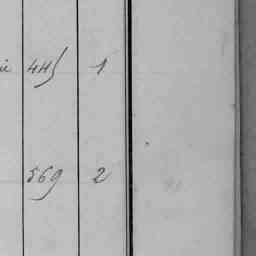 445 1
569 2